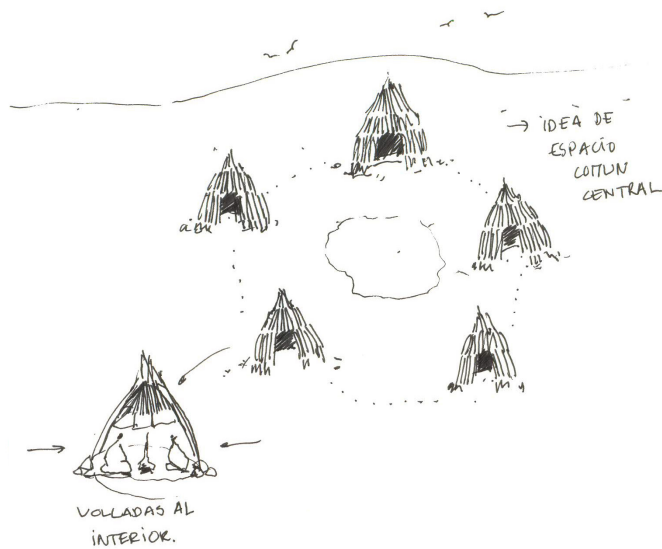 → IDEA DE
ESPACIO
COMUN
CENTRAL
VOLCADAS AL
INTERIOR.